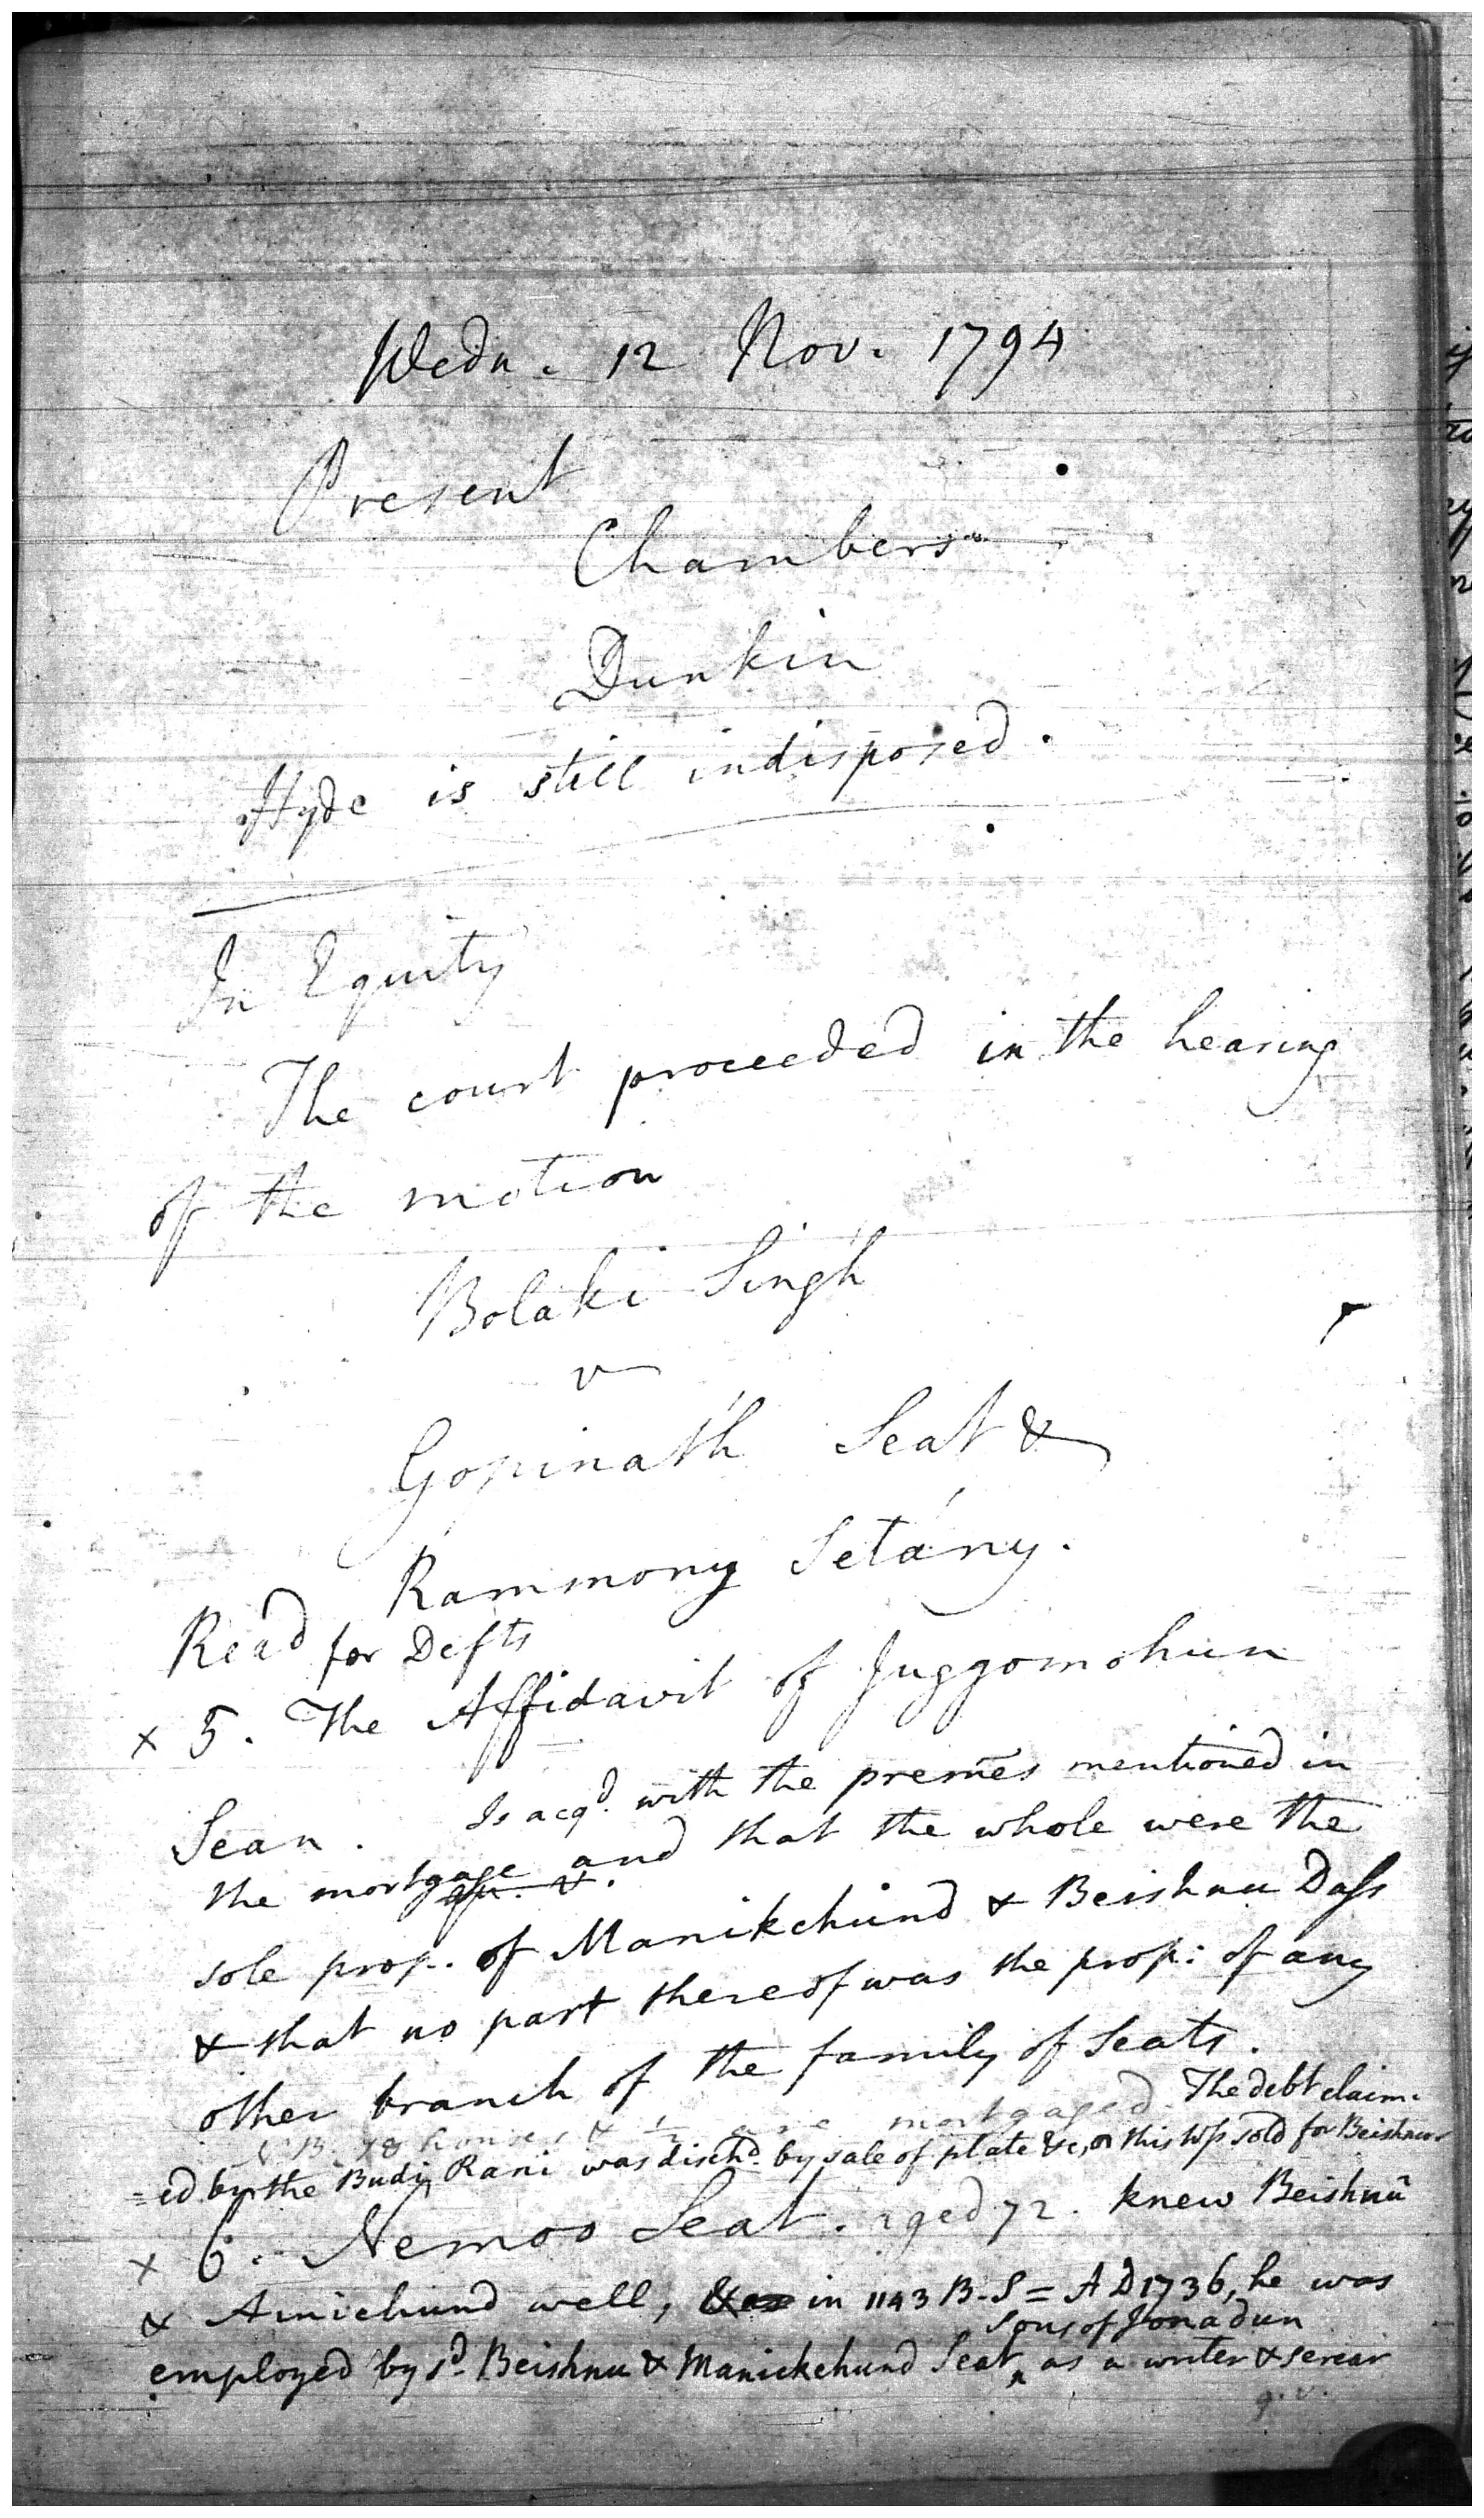 Wedn. 12 Nov. 1794
Present
Chambers
Dunkin
Hyde is still indisposed.
In Equity
The court proceeded in the hearing
of the motion
Bolaki Singh
v
Gopinath Seat &
Rammony Setány.
Read for Defts
x 5. The Affidavit of Juggomohun
Sean. Is acqd. with the premēs mentioned in
the mortgage and that the whole were the
sole prop. of Manikchund & Beishnu Dass
& that no part thereof was the prop: of any
other branch of the family of Seats.
N.B. 78 houses & ½ are mortgaged. The debt claim-
=ed by the Budi Rani was dischd. by sale of plate &c, on this sold for Beishnu
x 6. Nemoo Seat. aged 72. knew Beishnu
& Amichund well, in 1143 B.S = AD 1736, he was
sons of Jonadun
employed by sd. Beishnu & Manickchund Seat ^ as a writer & sercar
q.v.